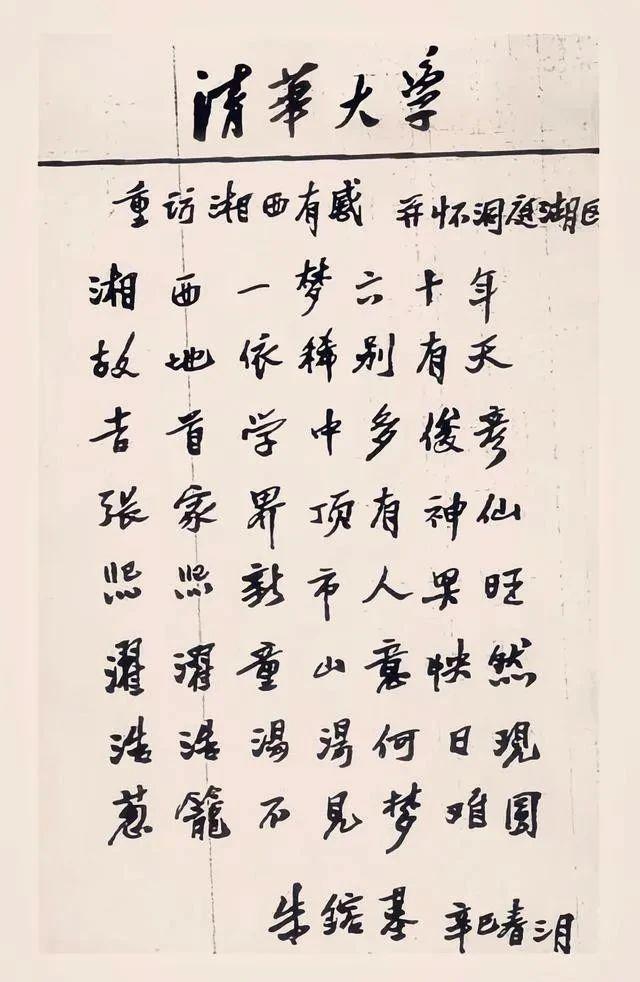 清華大学
重访湘西有感 并怀洞庭湖区
湘西一梦六十年
故地依稀别有天
吉首学中多俊彦
张家界顶有神仙
熙熙新市人旺
濯濯童山意怏然
浩浩湯湯何日現
葱籠不见梦难圆
朱鎔基 辛巳春三月